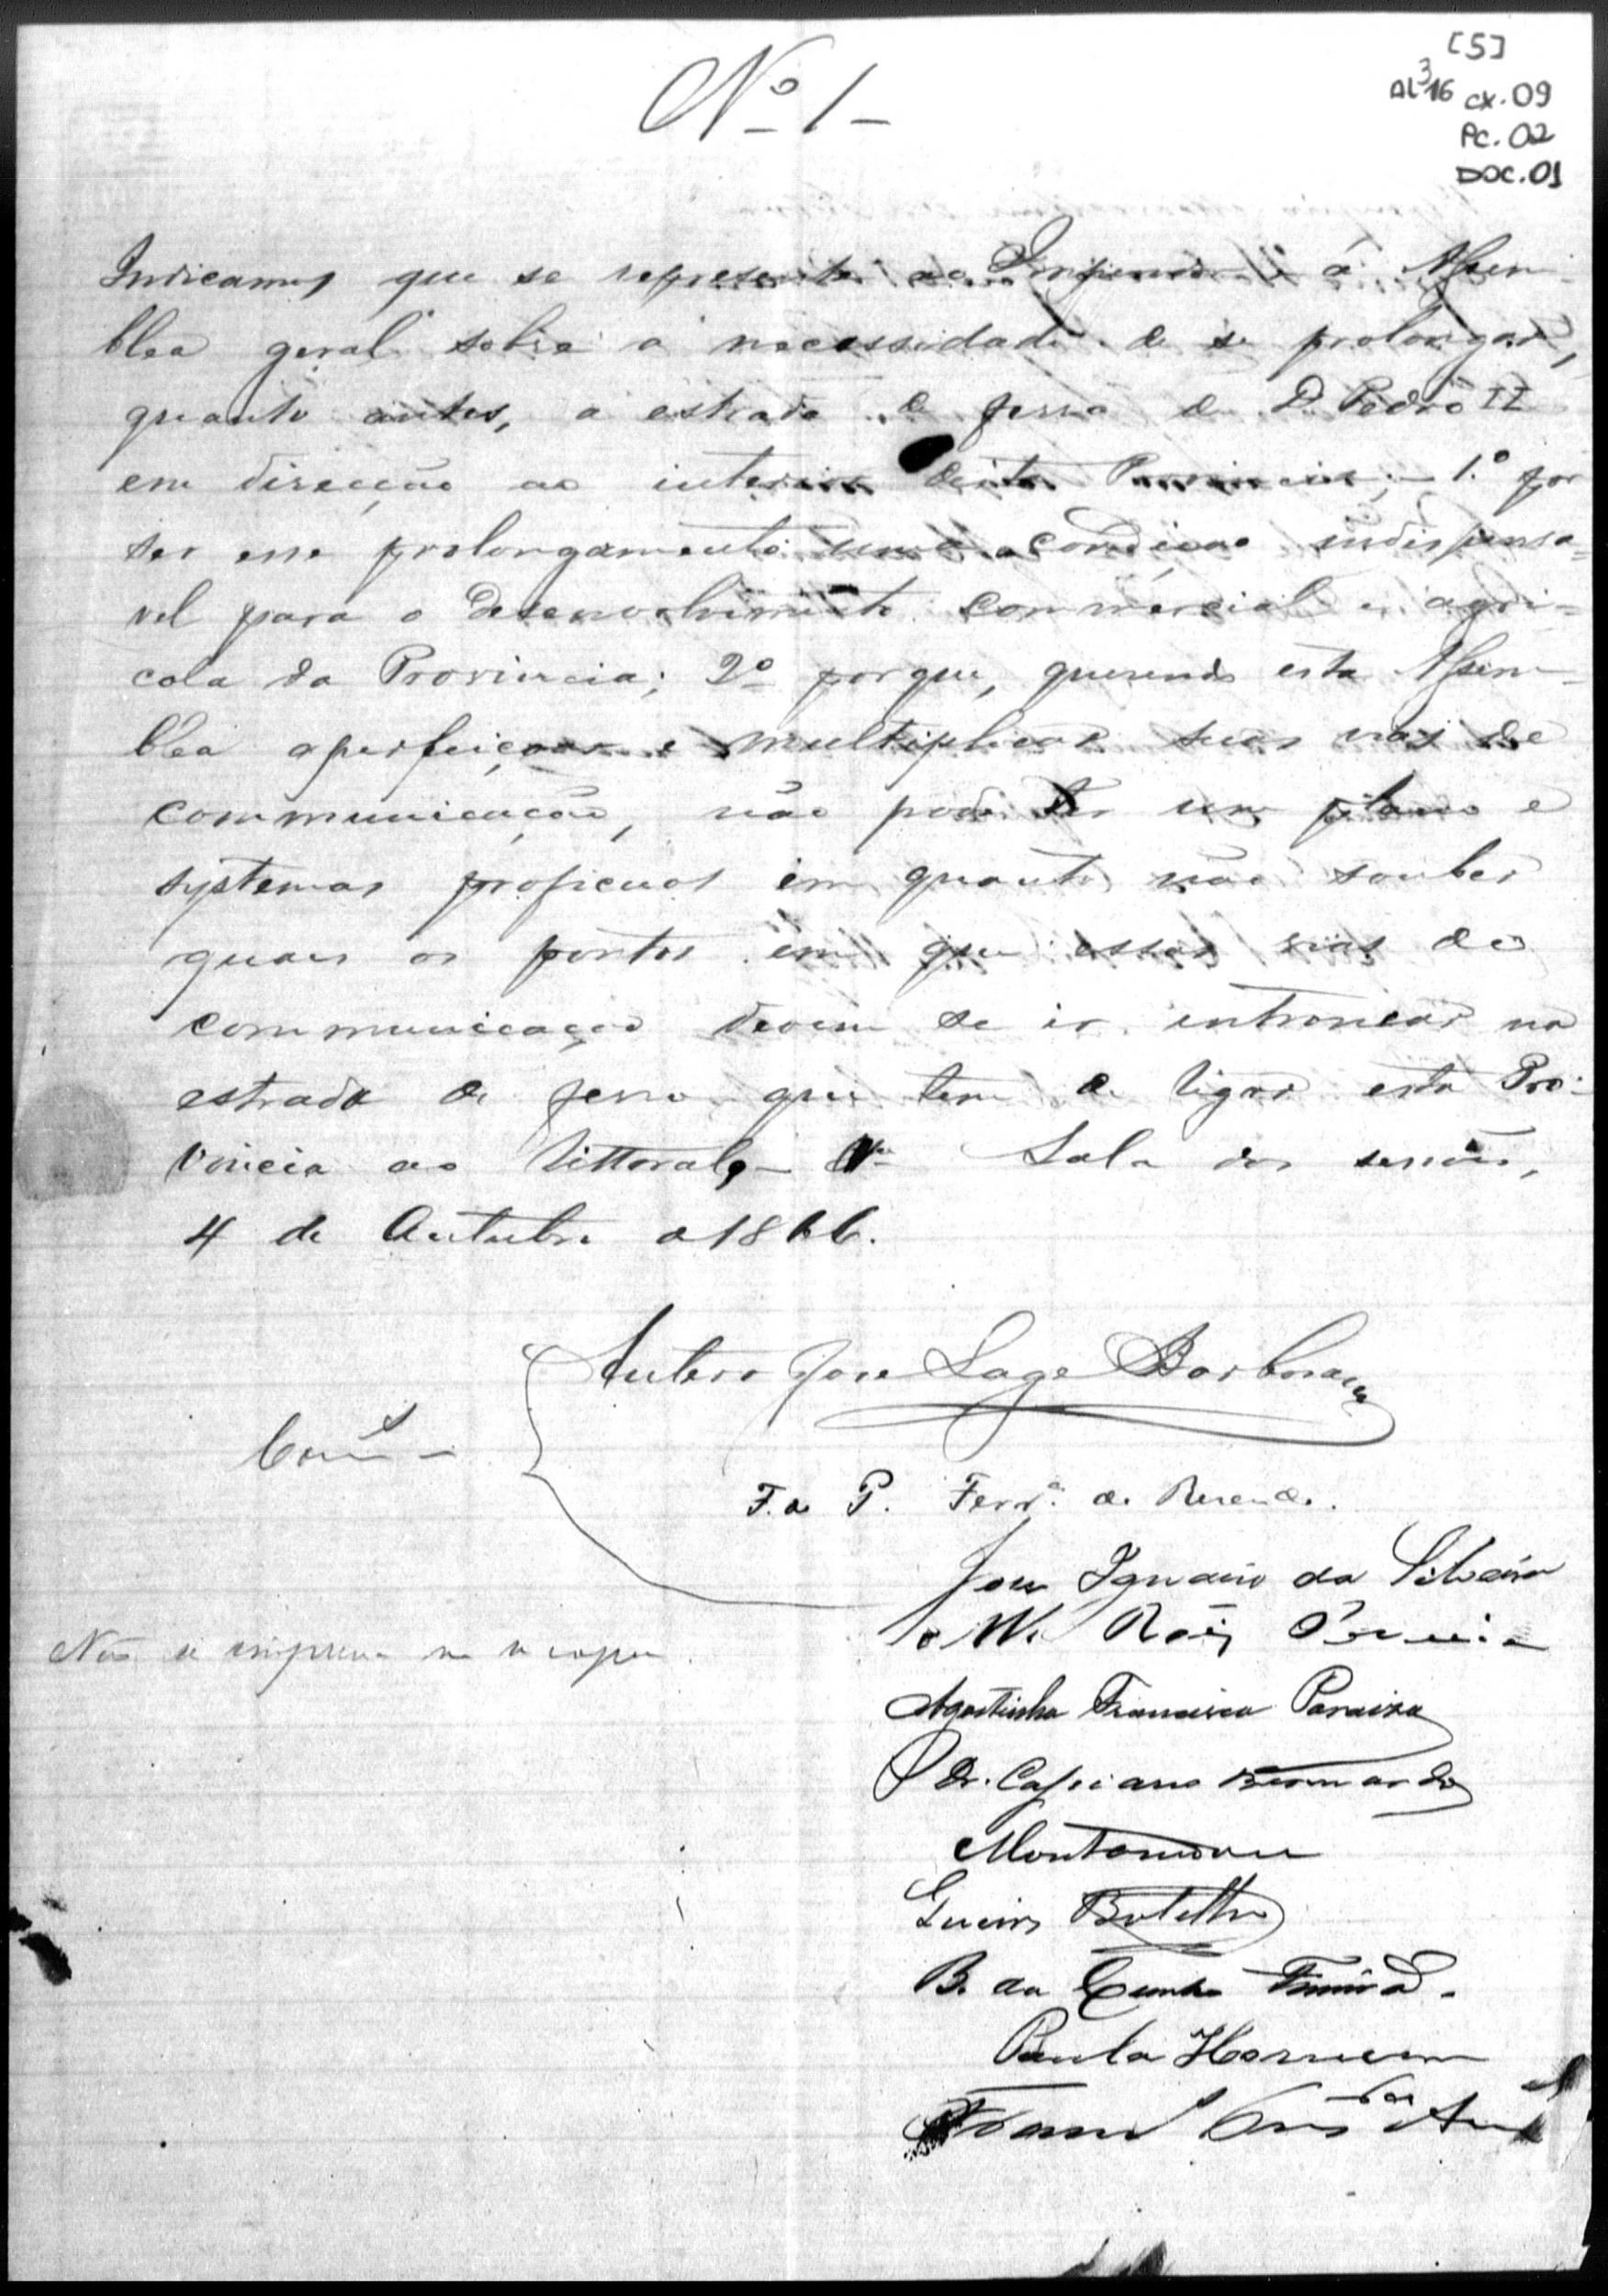 [5]
AL316 cx.09
Pc.02
DOC.01
Nº 1
Indicamos que se represente ao á Assem-
blea geral sobre a necessidade de se prolongar,
quanto antes, a estrada de ferro de D. Pedro II
em direcção ao interior desta Provincia; - 1.º por
ser esse prolongamento uma condiçao indispensa=
vel para o desenvolvimento commercial e agri=
cola da Provincia; 2º porque, querendo esta Assem-
blea aperfeiçoar e multiplicar suas vias de
communicação, não pode ter um plano e
systemas proficuos em quanto não souber
quaes os pontos em que essas vias de
communicação devem se ir entroncar na
estrada de ferro que tem de ligar esta Pro-
vincia ao littoral. Sala das sessões,
4 de Outubro de 1866.
Antero Jose Lage Barbosa
F. de P. Ferrª de Rezende.
Jose Ignacio da Silveira
Agostinho Francisco Paraizo
Dr. Cassiano Bernardo
Botelho
B. da Cunha
Paula